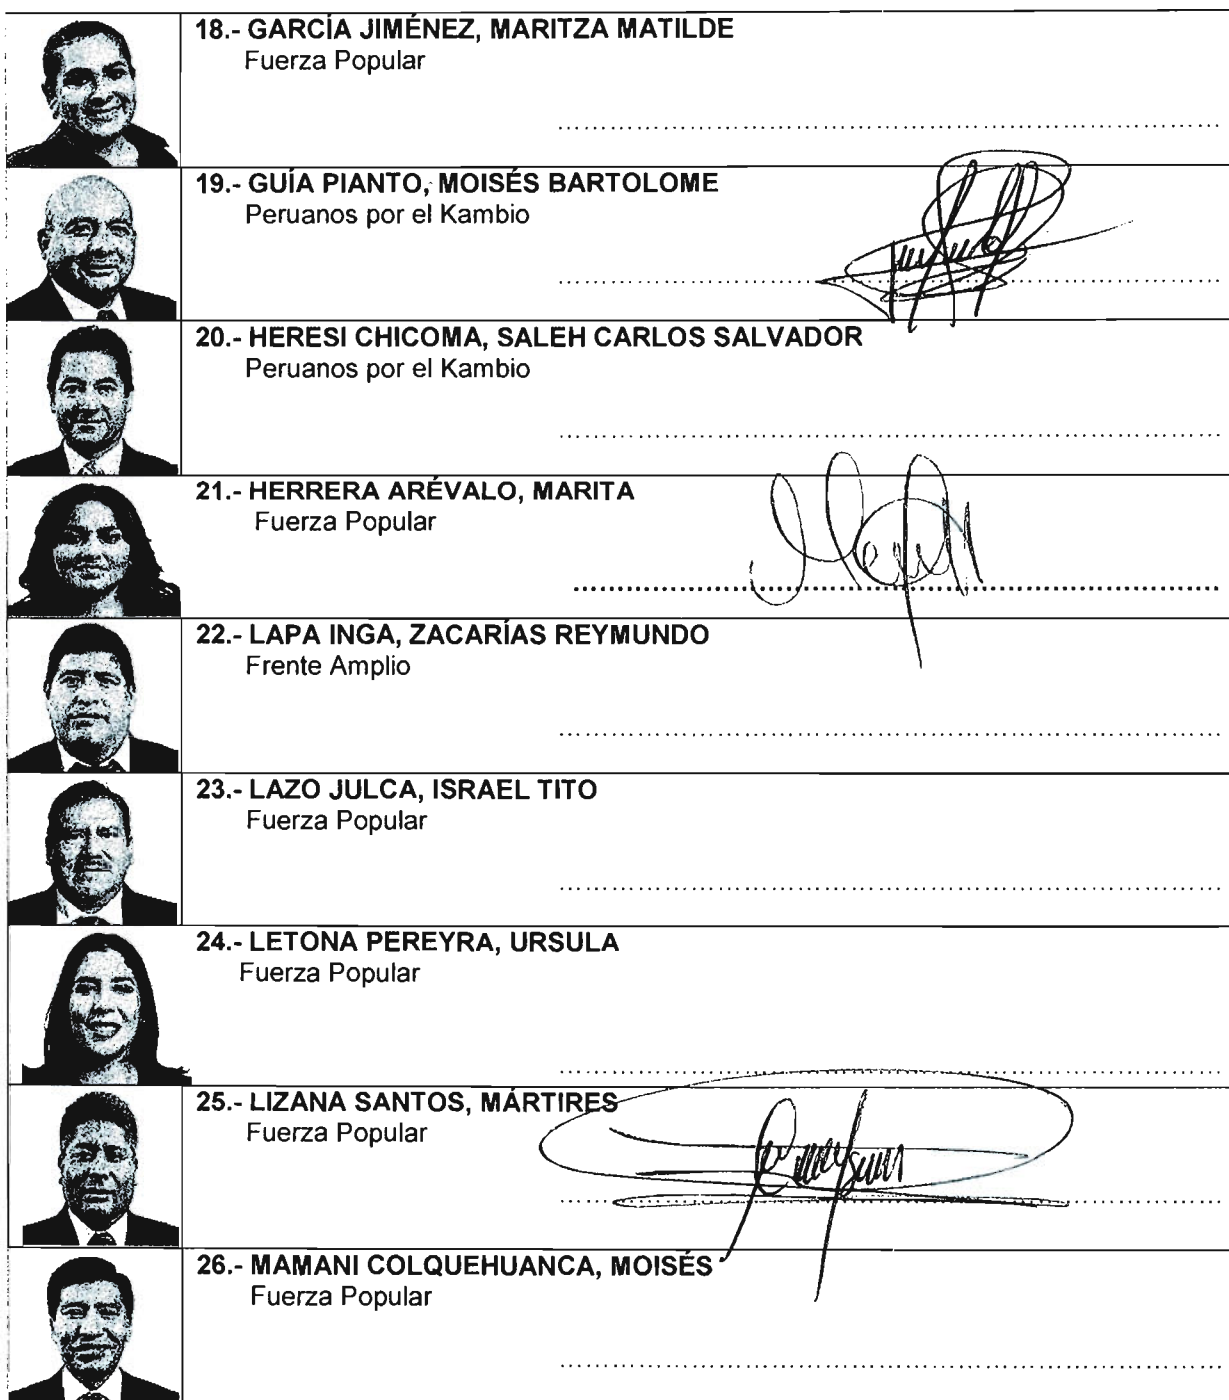 18.- GARCÍA JIMÉNEZ, MARITZA MATILDE
Fuerza Popular
19.- GUÍA PIANTO, MOISÉS BARTOLOME
Peruanos por el Kambio
20.- HERESI CHICOMA, SALEH CARLOS SALVADOR
Peruanos por el Kambio
21.- HERRERA ARÉVALO, MARITA
Fuerza Popular
22.- LAPA INGA, ZACARÍAS REYMUNDO
Frente Amplio
23.- LAZO JULCA, ISRAEL TITO
Fuerza Popular
24.- LETONA PEREYRA, URSULA
Fuerza Popular
25.- LIZANA SANTOS, MÁRTIRES
Fuerza Popular
26.- MAMANI COLQUEHUANCA, MOISÉS
Fuerza Popular